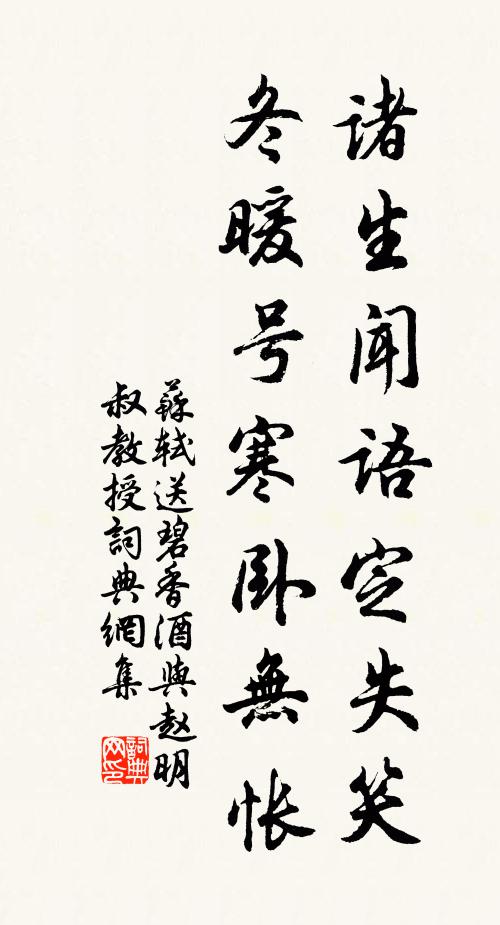 諸生聞語定失笑
冬暖号寒卧無帐
蘇軾送碧香酒與赵明
叔教授詞典網集
詞典
网印